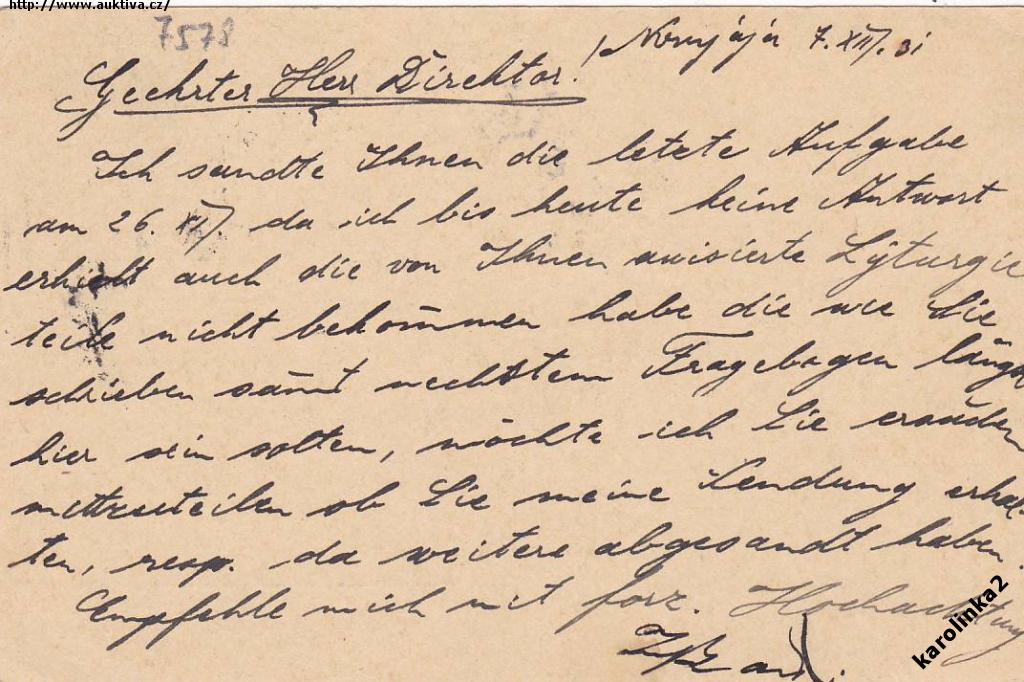 http://www.auktiva.cz/
7578
7. XII. 31
Geehrter Herr Direktor!
Ich sandte Ihnen die letzte Aufgabe
am 26. XI. da ich bis heute keine Antwort
erhielt auch die von Ihnen avisierte Lyturgie
teile nicht bekommen habe die wie Sie
schrieben sämt nechstem Fragebogen längst
hier sein solten, möchte ich Sie
mittzuteilen ob Sie meine Sendung erhal-
ten, resp. da weitere abgesandt haben.
Empfehle mich mit forz. Hochachtung
karolinka2